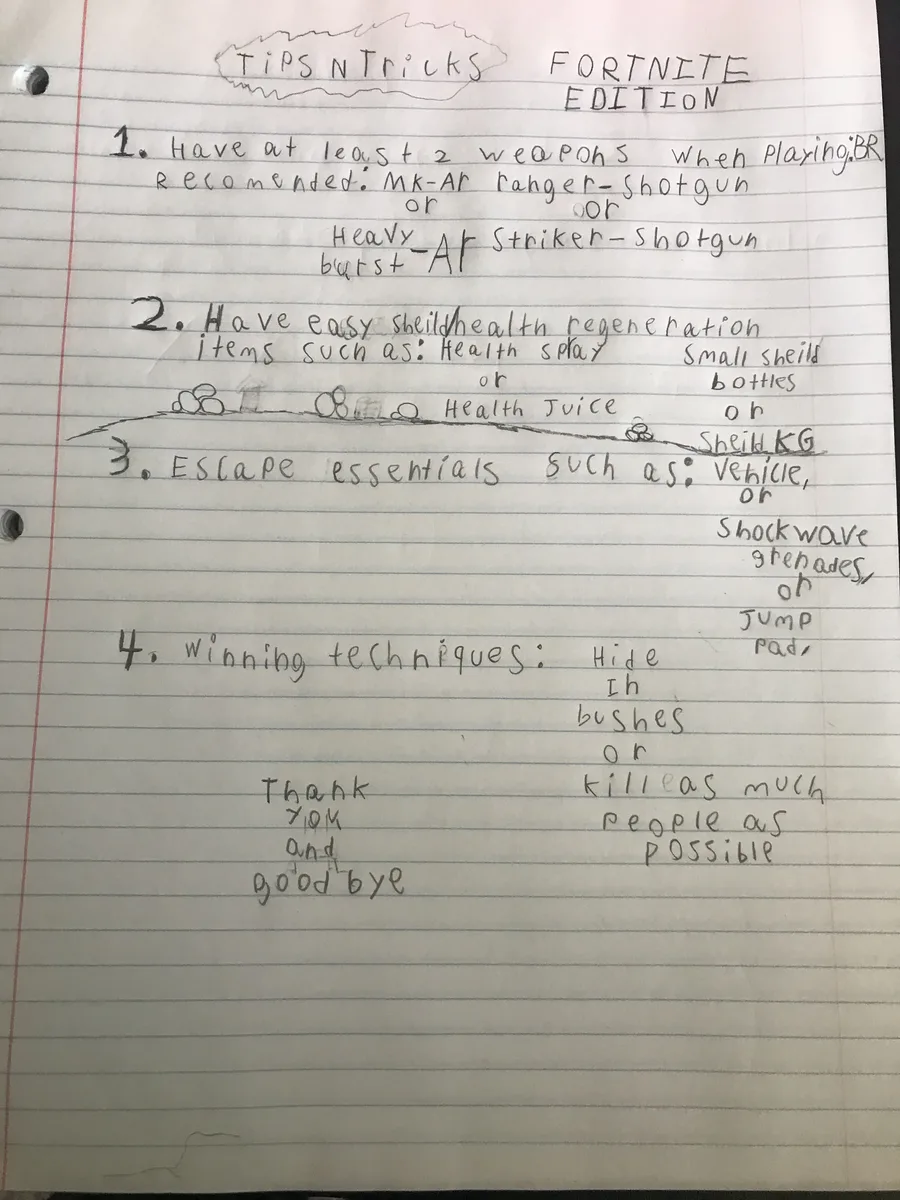 TiPS N TricKS
FORTNITE
EDITION
1. Have at least 2 weapons when Playing:BR
Recomended: MK-Ar ranger-shotgun
or or
Heavy burst-Ar Striker-shotgun
2. Have easy sheild/health regeneration
items such as: Health spray
or
Health Juice
Small sheild
bottles
or
Sheild KG
3. Escape essentials such as: Vehicle,
or
Shockwave
grenades,
or
Jump
Pad,
4. winning techniques: Hide
In
bushes
or
Kill as much
people as
possible
Thank
you
and
good bye